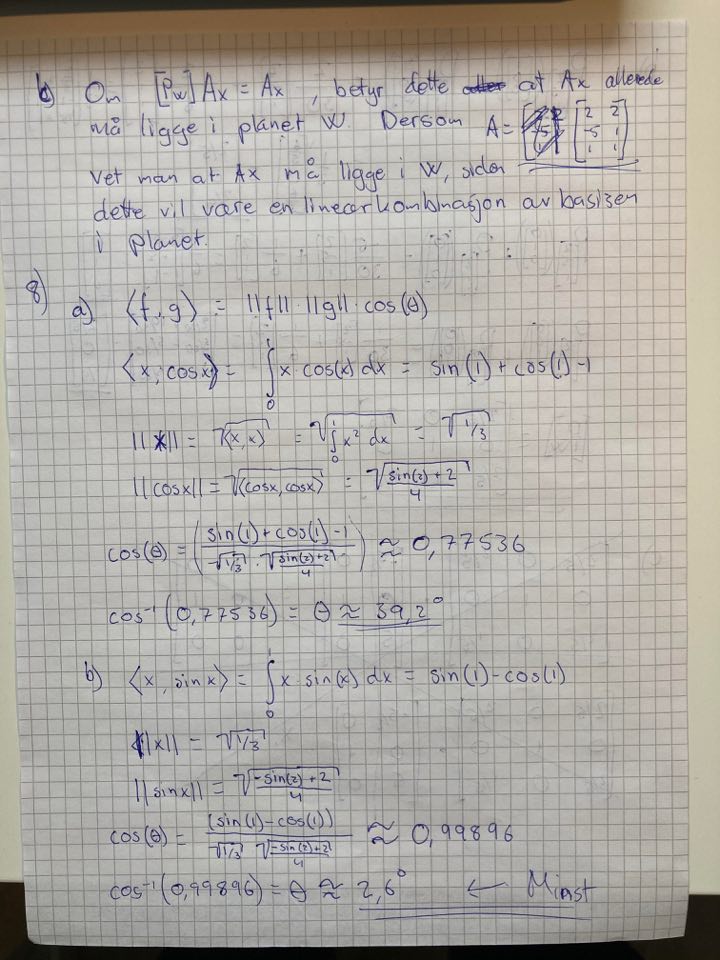 b) Om [Pw]Ax = Ax, betyr dette at Ax allerede
må ligge i planet W. Dersom A = [2 2; -5 1; 1 1]
vet man at Ax må ligge i W, siden
dette vil være en lineær kombinasjon av basisen
i planet.
8)
a) ⟨f, g⟩ = ||f|| · ||g|| · cos(θ)
⟨x, cosx⟩ = ∫₀¹ x · cos(x) dx = sin(1) + cos(1) - 1
||x|| = √⟨x, x⟩ = √(∫₀¹ x² dx) = √(1/3)
||cosx|| = √⟨cosx, cosx⟩ = √((sin(2) + 2)/4)
cos(θ) = ((sin(1) + cos(1) - 1)/(√(1/3) · √((sin(2) + 2)/4))) ≈ 0,77536
cos⁻¹(0,77536) = θ ≈ 39,2°
b) ⟨x, sinx⟩ = ∫₀¹ x · sin(x) dx = sin(1) - cos(1)
||x|| = √(1/3)
||sinx|| = √((-sin(2) + 2)/4)
cos(θ) = (sin(1) - cos(1))/(√(1/3) √((-sin(2) + 2)/4)) ≈ 0,99896
cos⁻¹(0,99896) = θ ≈ 2,6° ← Minst